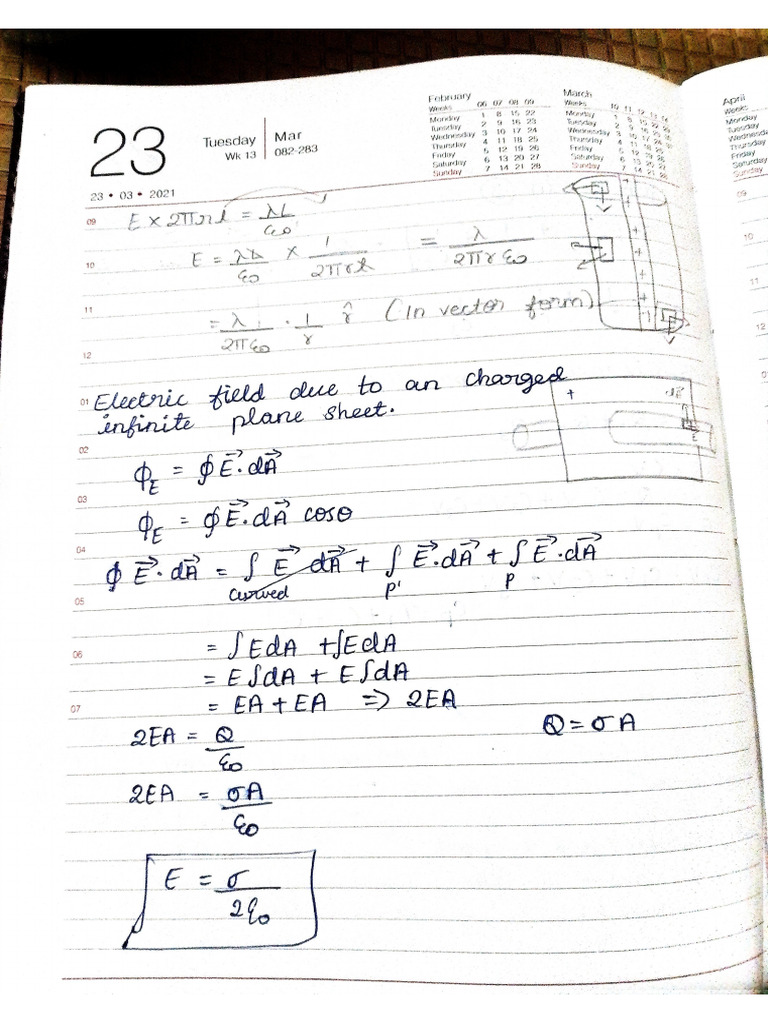 February
Weeks 06 07 08 09
Monday 1 8 15 22
Tuesday 2 9 16 23
Wednesday 3 10 17 24
Thursday 4 11 18 25
Friday 5 12 19 26
Saturday 6 13 20 27
Sunday 7 14 21 28
March
Weeks 10 11 12 13 14
Monday 1 8 15 22 29
Tuesday 2 9 16 23 30
Wednesday 3 10 17 24 31
Thursday 4 11 18 25
Friday 5 12 19 26
Saturday 6 13 20 27
Sunday 7 14 21 28
April
Weeks
Monday
Tuesday
Wednesday
Thursday
Friday
Saturday
Sunday
23 Tuesday Mar
Wk 13 082-283
23 • 03 • 2021
09 E × 2πrl = λL/ε0
10 E = λL/ε0 × 1/2πrl = λ/2πrε0
11 = λ/2πε0 · 1/r r̂ (In vector form)
12
01 Electric field due to an charged
infinite plane sheet.
02
ϕE = ∮E⃗·dA⃗
03
ϕE = ∮E⃗·dA⃗ cosθ
04
∮E⃗·dA⃗ = ∫E⃗ dA⃗ + ∫E⃗·dA⃗ + ∫E⃗·dA⃗
curved P' P
05
06 = ∫EdA + ∫EdA
= E∫dA + E∫dA
07 = EA + EA ⇒ 2EA
2EA = Q/ε0 Q = σA
2EA = σA/ε0
E = σ/2ε0